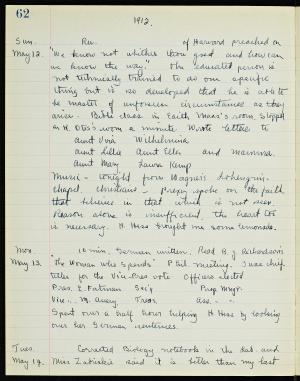 62
1912.
Sun. Rev. of Harvard preached on
May 12. "We know not whither thou goest and how can
we know the way." The educated person is
not technically trained to do one specific
thing but is so developed that he is able to
be master of unforseen circumstance as they
arise. Bible class in Edith Maas's room. Stopped
in H. Otis's room a minute. Wrote letters to
aunt Vira Wilhelmina
aunt Lella aunt Ella and mamma.
aunt Mary Laura Kemp
Music - tonight from Wagner's Lohengrin.
chapel, Christians - Prexy spoke on the faith
that believes in that which is not seen
Reason alone is insufficient, the heart
is necessary. H. Hess brought me some lemonade.
Mon. 10 min. German written. Read B. J. Richardson's
May 13. The Woman who Spends. Phil. meeting. I was chief
teller for the Vice-Pres vote Officers elected
Pres. E. Sec'y Prog. Mngr.
Vice. M. Avery. Treas.
Spent over a half hour helping H. Hess by looking
over her German sentences.
Tues. Corrected Biology notebook in the lab and
May 14. Miss said it is better than my last